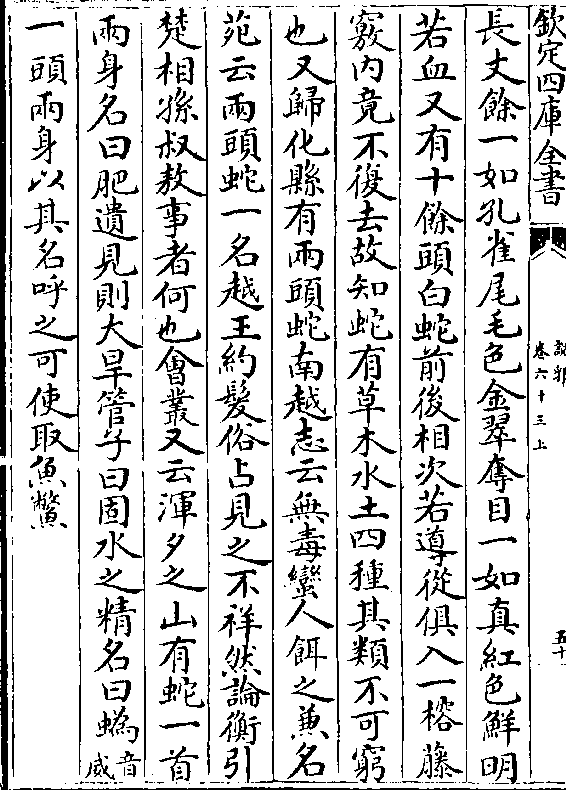 欽定四庫全書
說郛
卷六十三上
五十
長丈餘一如孔雀尾毛色金翠奪目一如真紅色鮮明
若血又有十餘頭白蛇前後相次若導從俱入一榕藤
竅内竟不復去故知蛇有草木水土四種其類不可窮
也又歸化縣有兩頭蛇南越志云無毒蠻人餌之兼名
苑云兩頭蛇一名越王約髮俗占見之不祥然論衡引
楚相孫叔敖事者何也會叢又云渾夕之山有蛇一首
兩身名曰肥遺見則大旱管子曰固水之精名曰蟡音威
一頭兩身以其名呼之可使取魚鱉